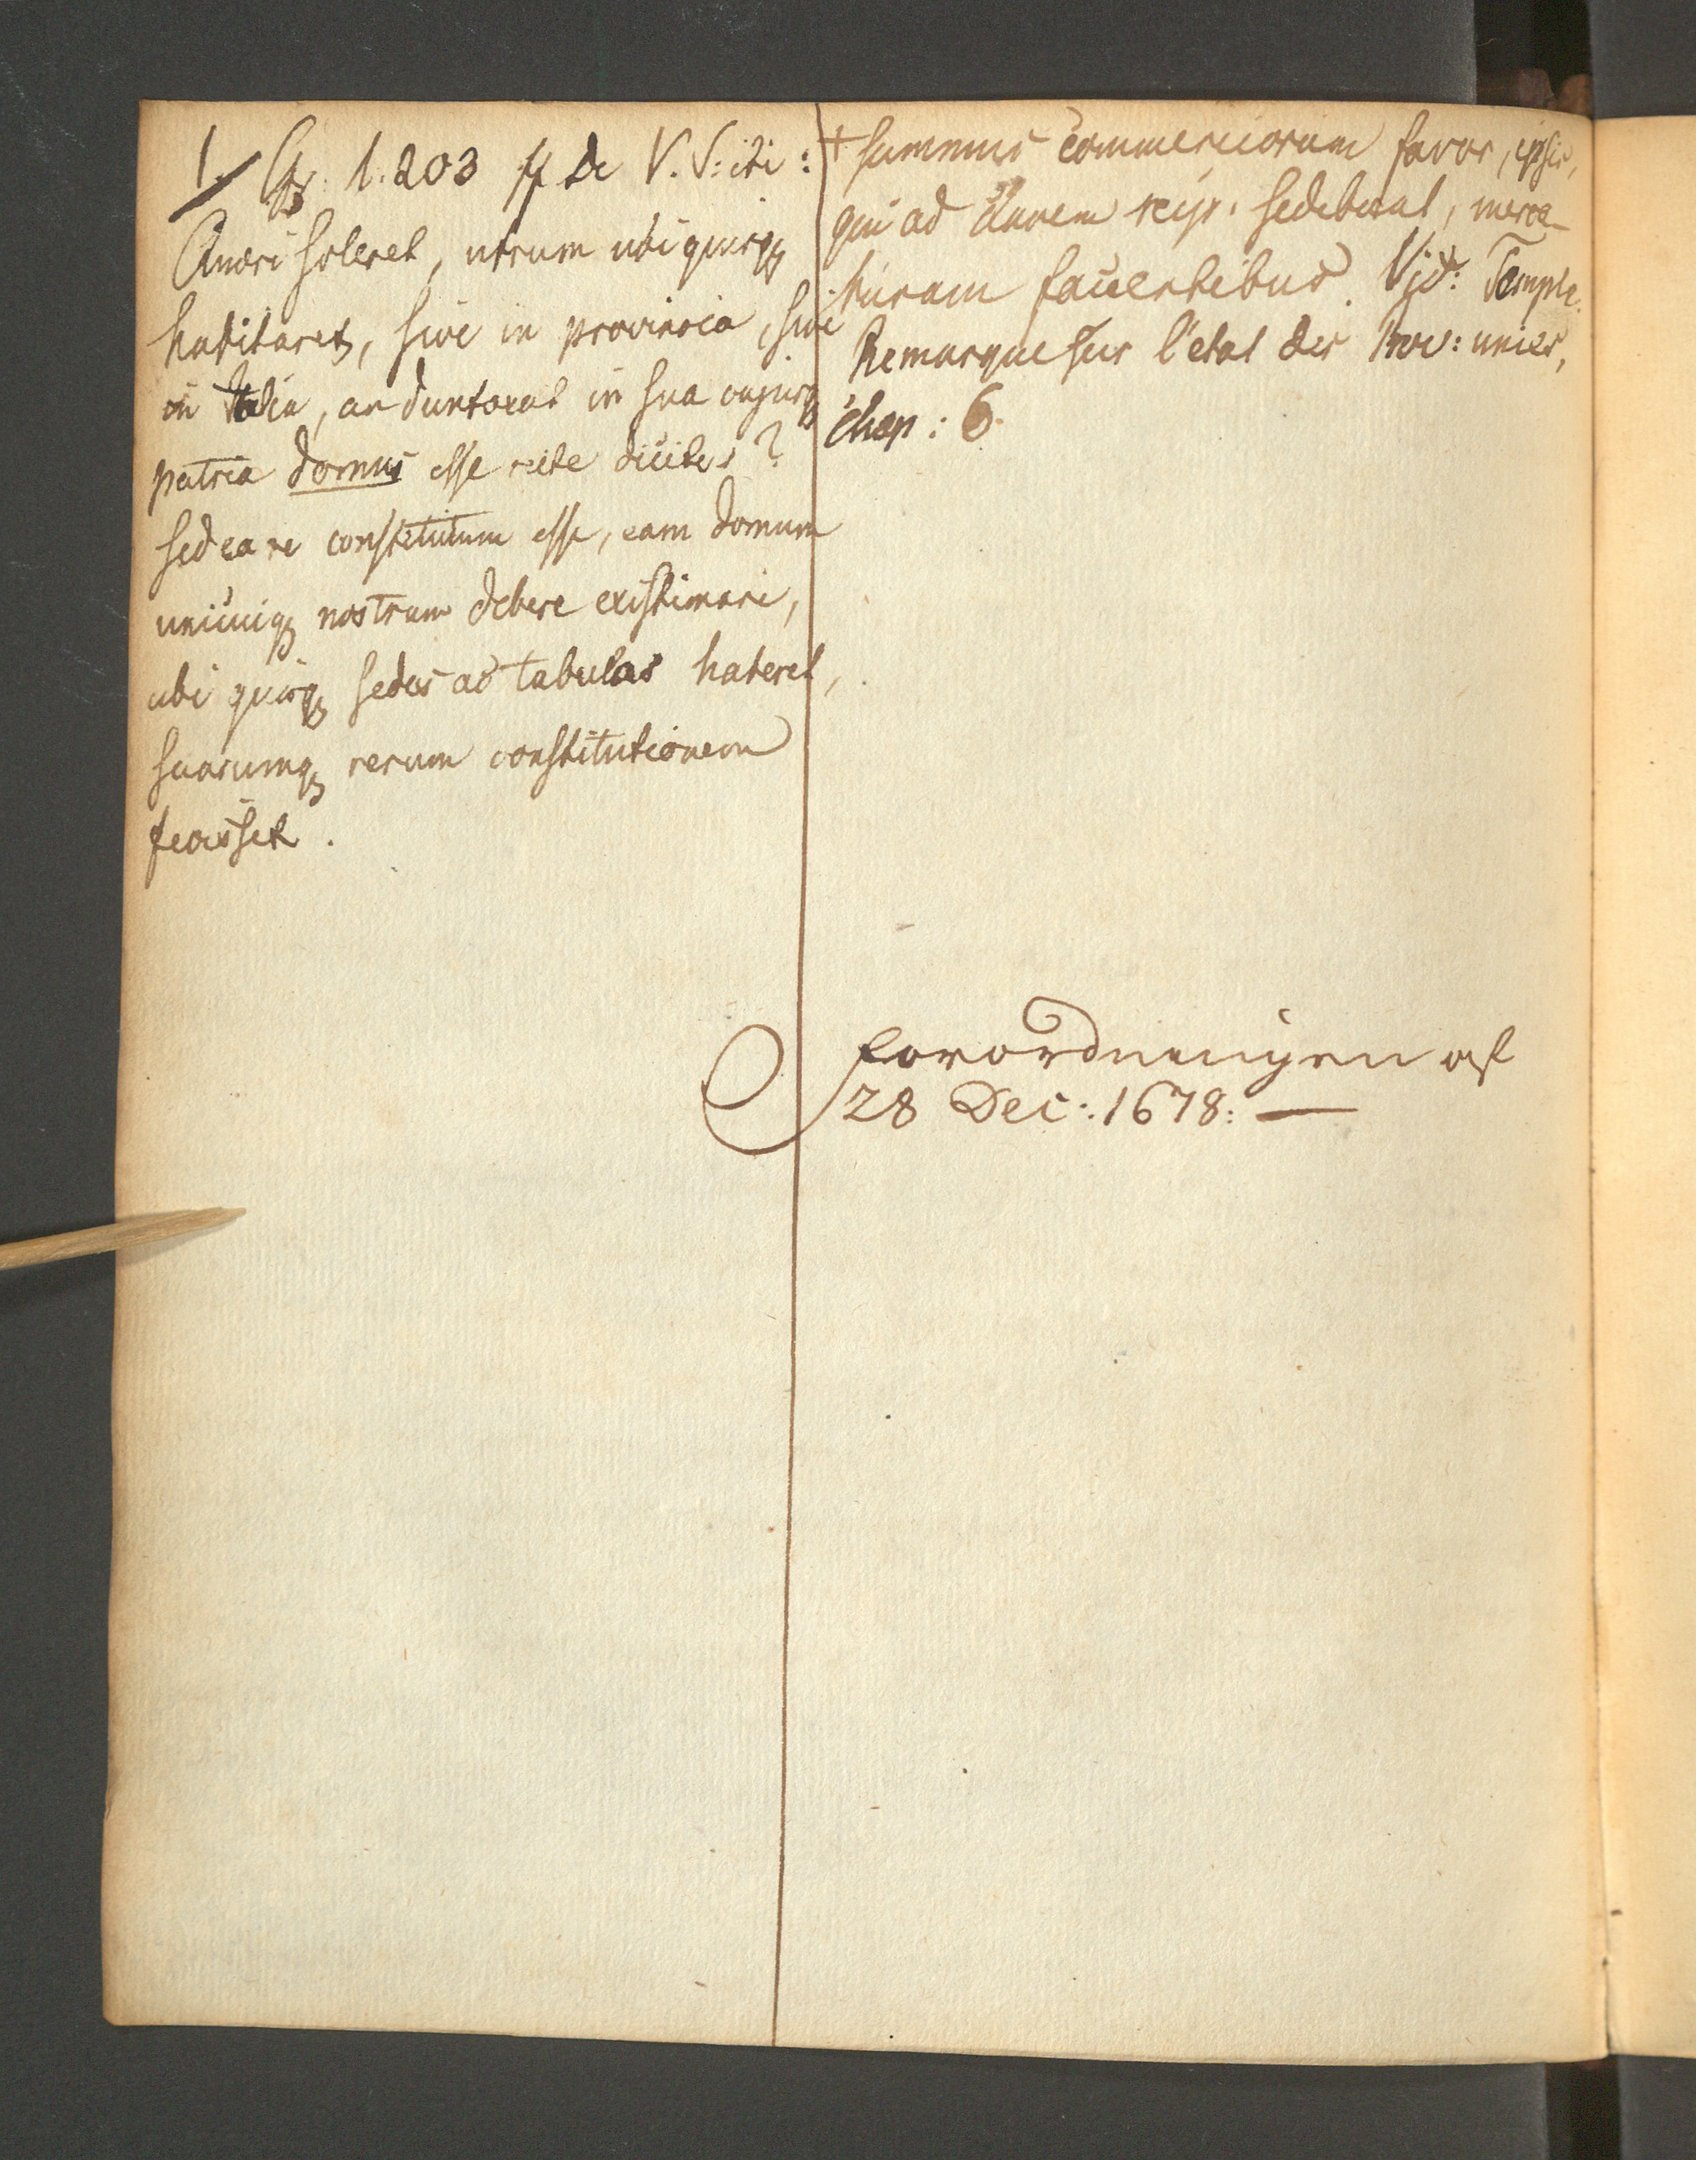 1. Cfr: l. 203 ff de V. S: ibi:
Quæri soleret, utrum ubi quisqꝫ
habitaret, sive in provincia, sive
in Italia, an duntaxat in sua cujusqꝫ
patria domus esse recte dicetur?
sed ea re constitutum esse, eam domum
unicuiqꝫ nostrum debere existimari,
ubi quisqꝫ sedes ac tabulas haberet,
suarumqꝫ rerum constitutionem
fecisset.
+ summus commerciorum favor, ipsis,
qui ad clavem reip. sedebant, merca-
turam faventibus. Vid: Temple.
Remarque sur l'etat des Prov: unies,
chap: 6.
forordningen af
28 Dec: 1678: —